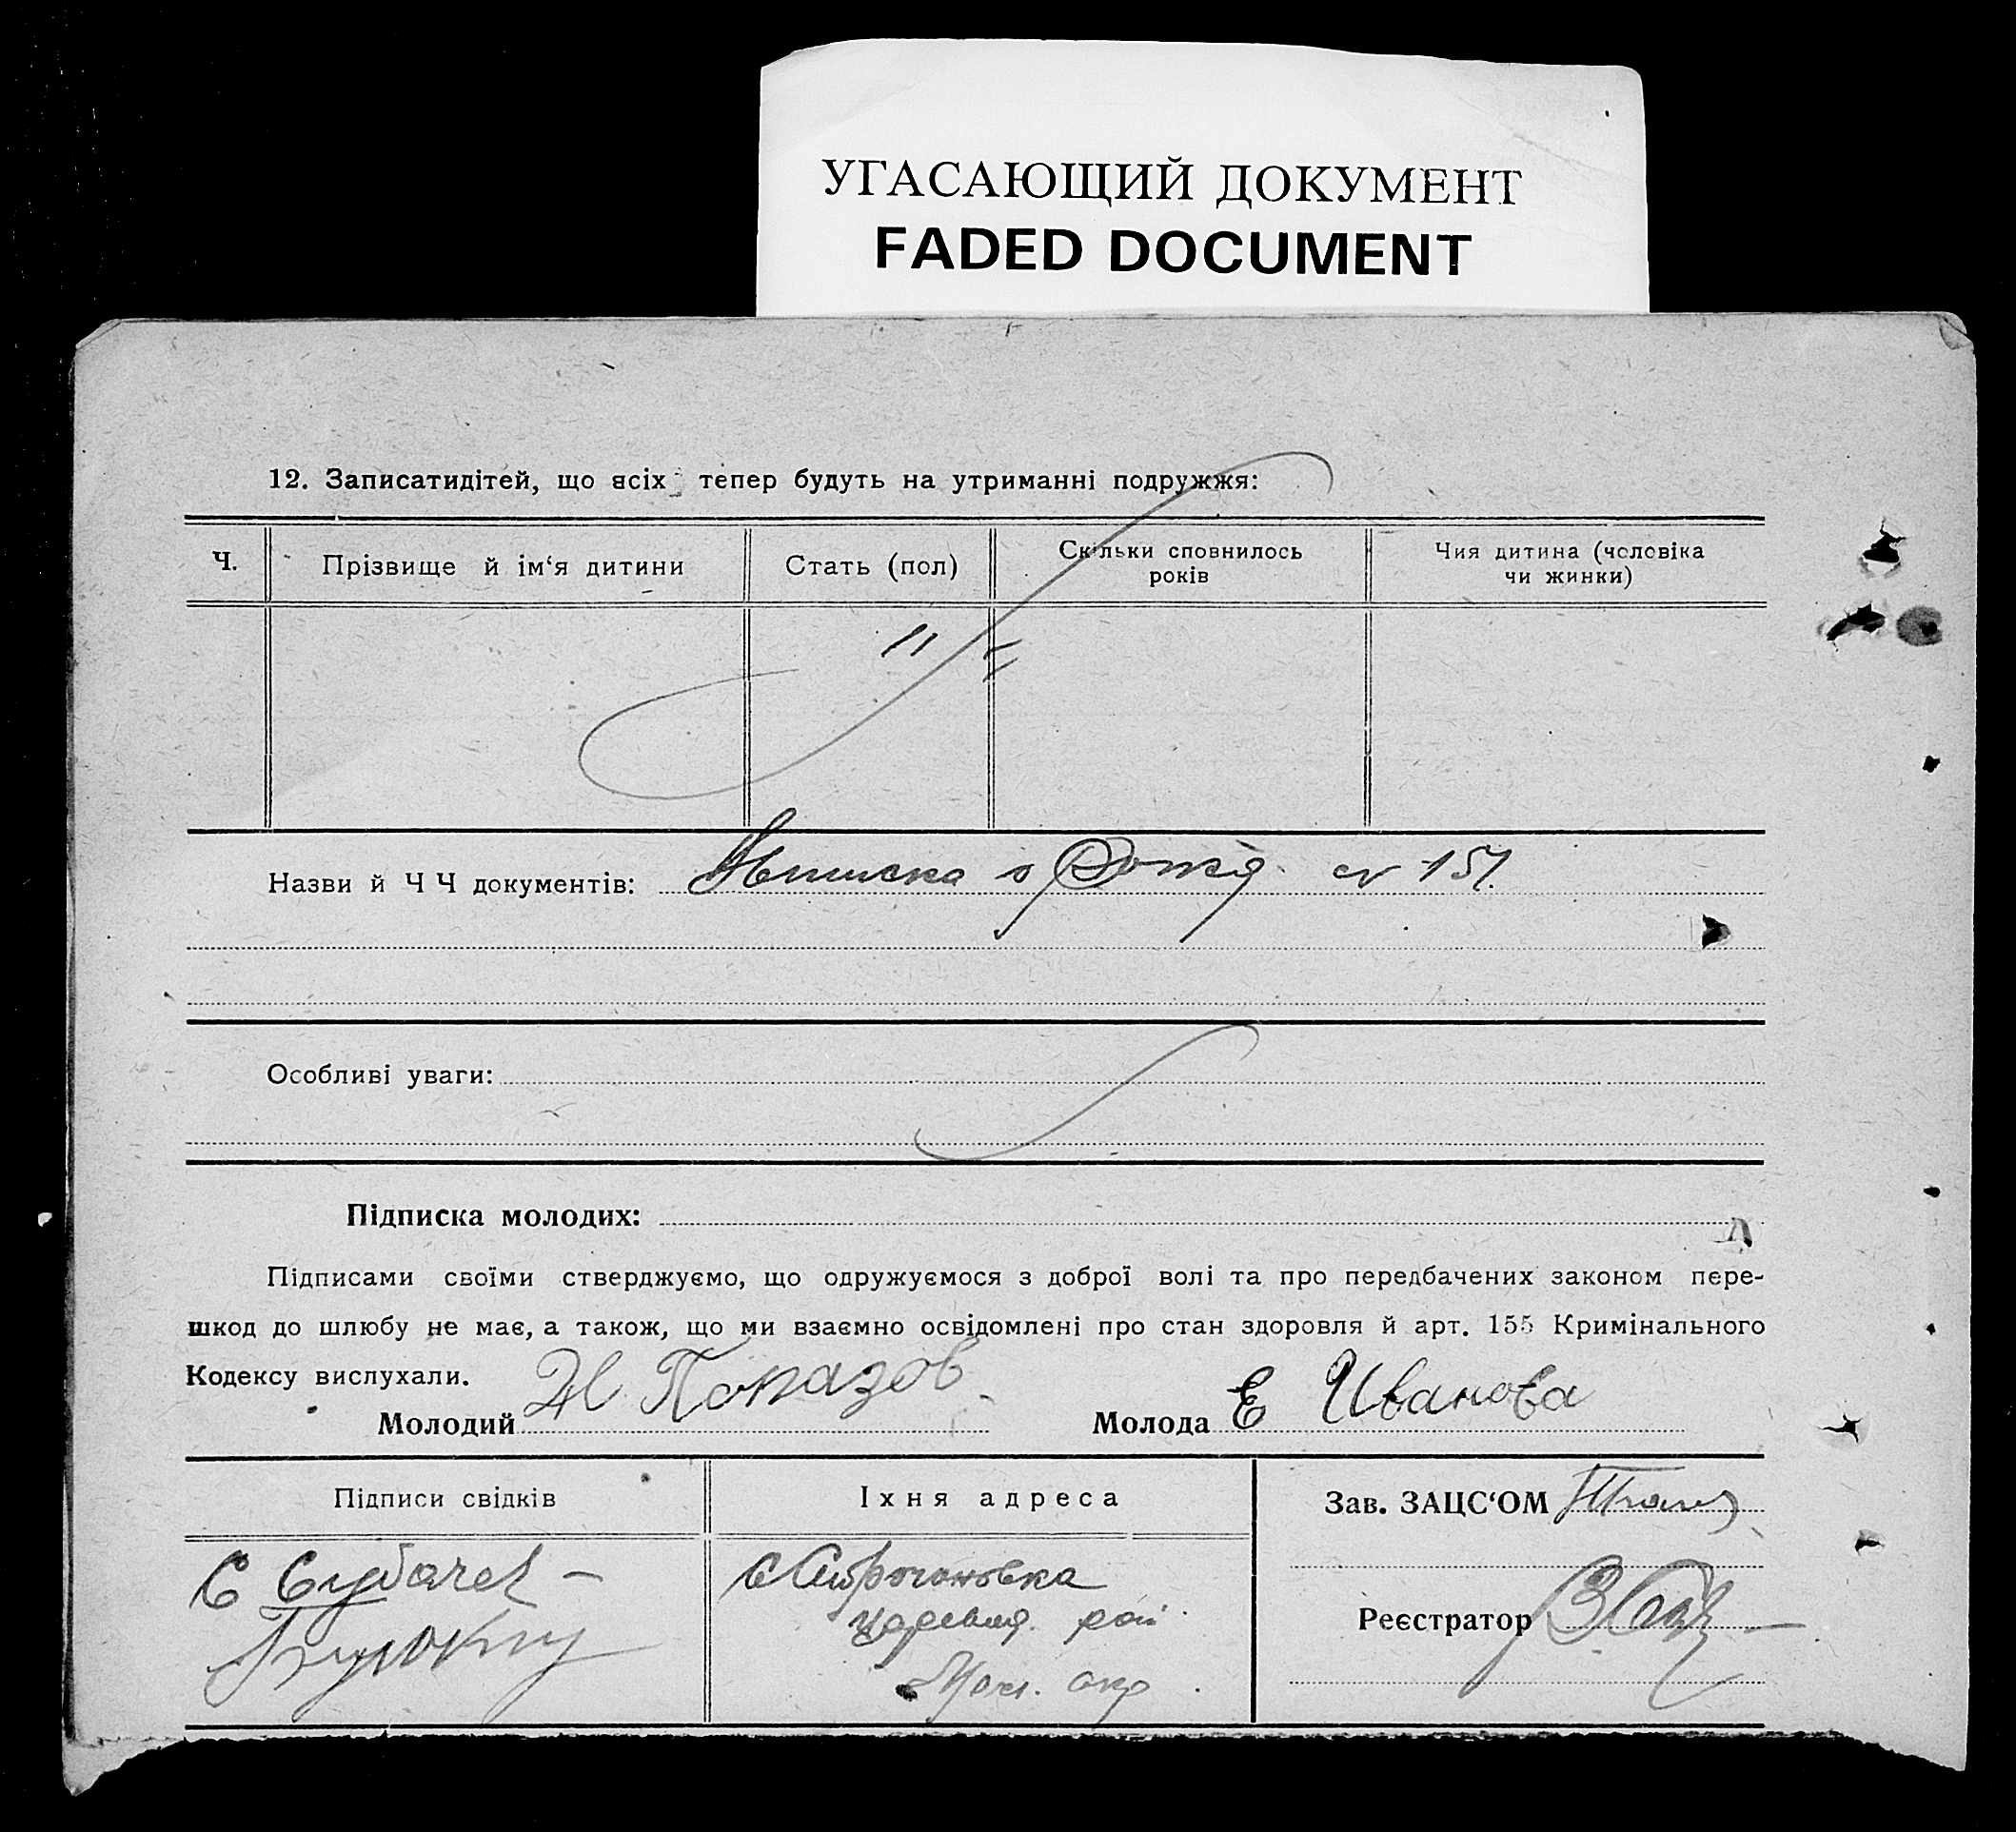 УГАСАЮЩИЙ ДОКУМЕНТ
FADED DOCUMENT
12. Записатидітей, що всіх тепер будуть на утриманні подружжя:
Ч.
Прізвище й ім‘я дитини
Стать (пол)
Скільки сповнилось років
Чия дитина (чоловіка чи жинки)
Назви й Ч Ч документів: Выписка о Рожд. № 151.
Особливі уваги:
Підписка молодих:
Підписами своїми стверджуємо, що одружуємося з доброї волі та про передбачених законом пере-
шкод до шлюбу не має, а також, що ми взаємно освідомлені про стан здоровля й арт. 155 Кримінального
Кодексу вислухали.
Молодий Попазов
Молода Е Иванова
Підписи свідків
Їхня адреса
Зав. ЗАЦС‘ОМ
С
С
рай.
окр.
Реєстратор